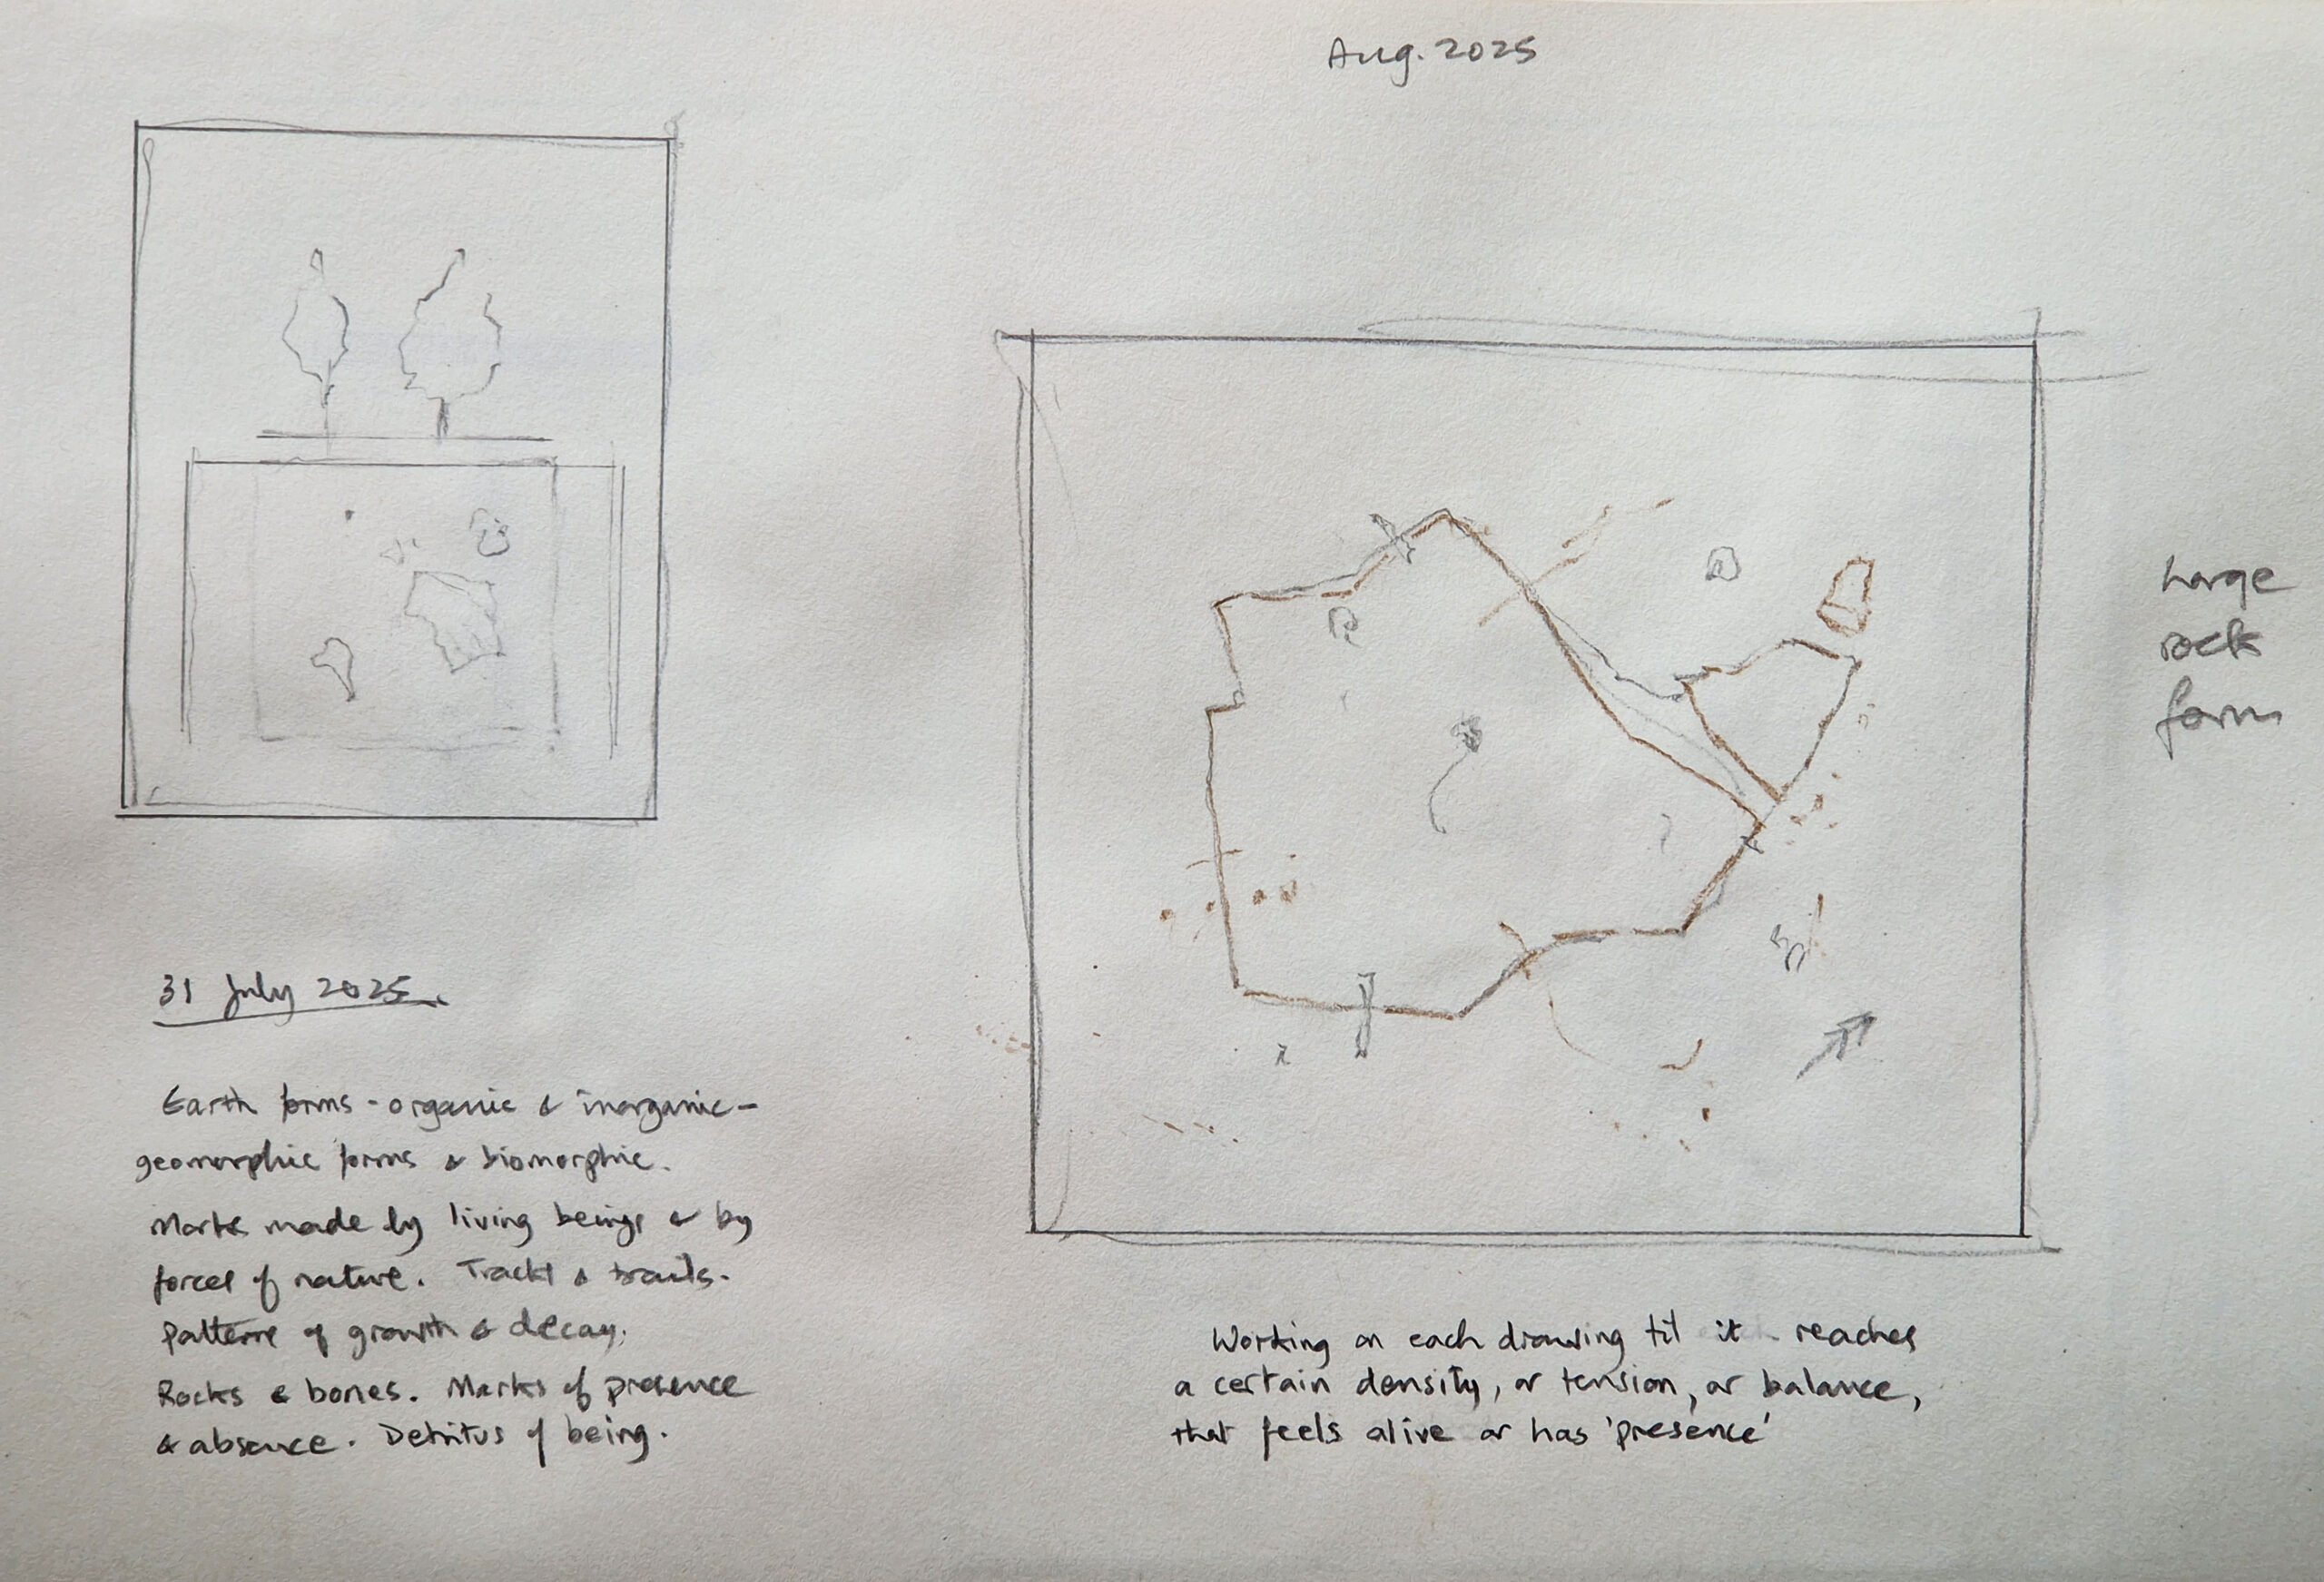 Aug. 2025
Large
rock
form
31 July 2025.
Earth forms - organic & inorganic -
geomorphic forms & biomorphic.
Marks made by living beings & by
forces of nature. Tracks & trails.
Patterns of growth & decay.
Rocks & bones. Marks of presence
& absence. Detritus of being.
Working on each drawing til it reaches
a certain density, or tension, or balance,
that feels alive or has 'presence'